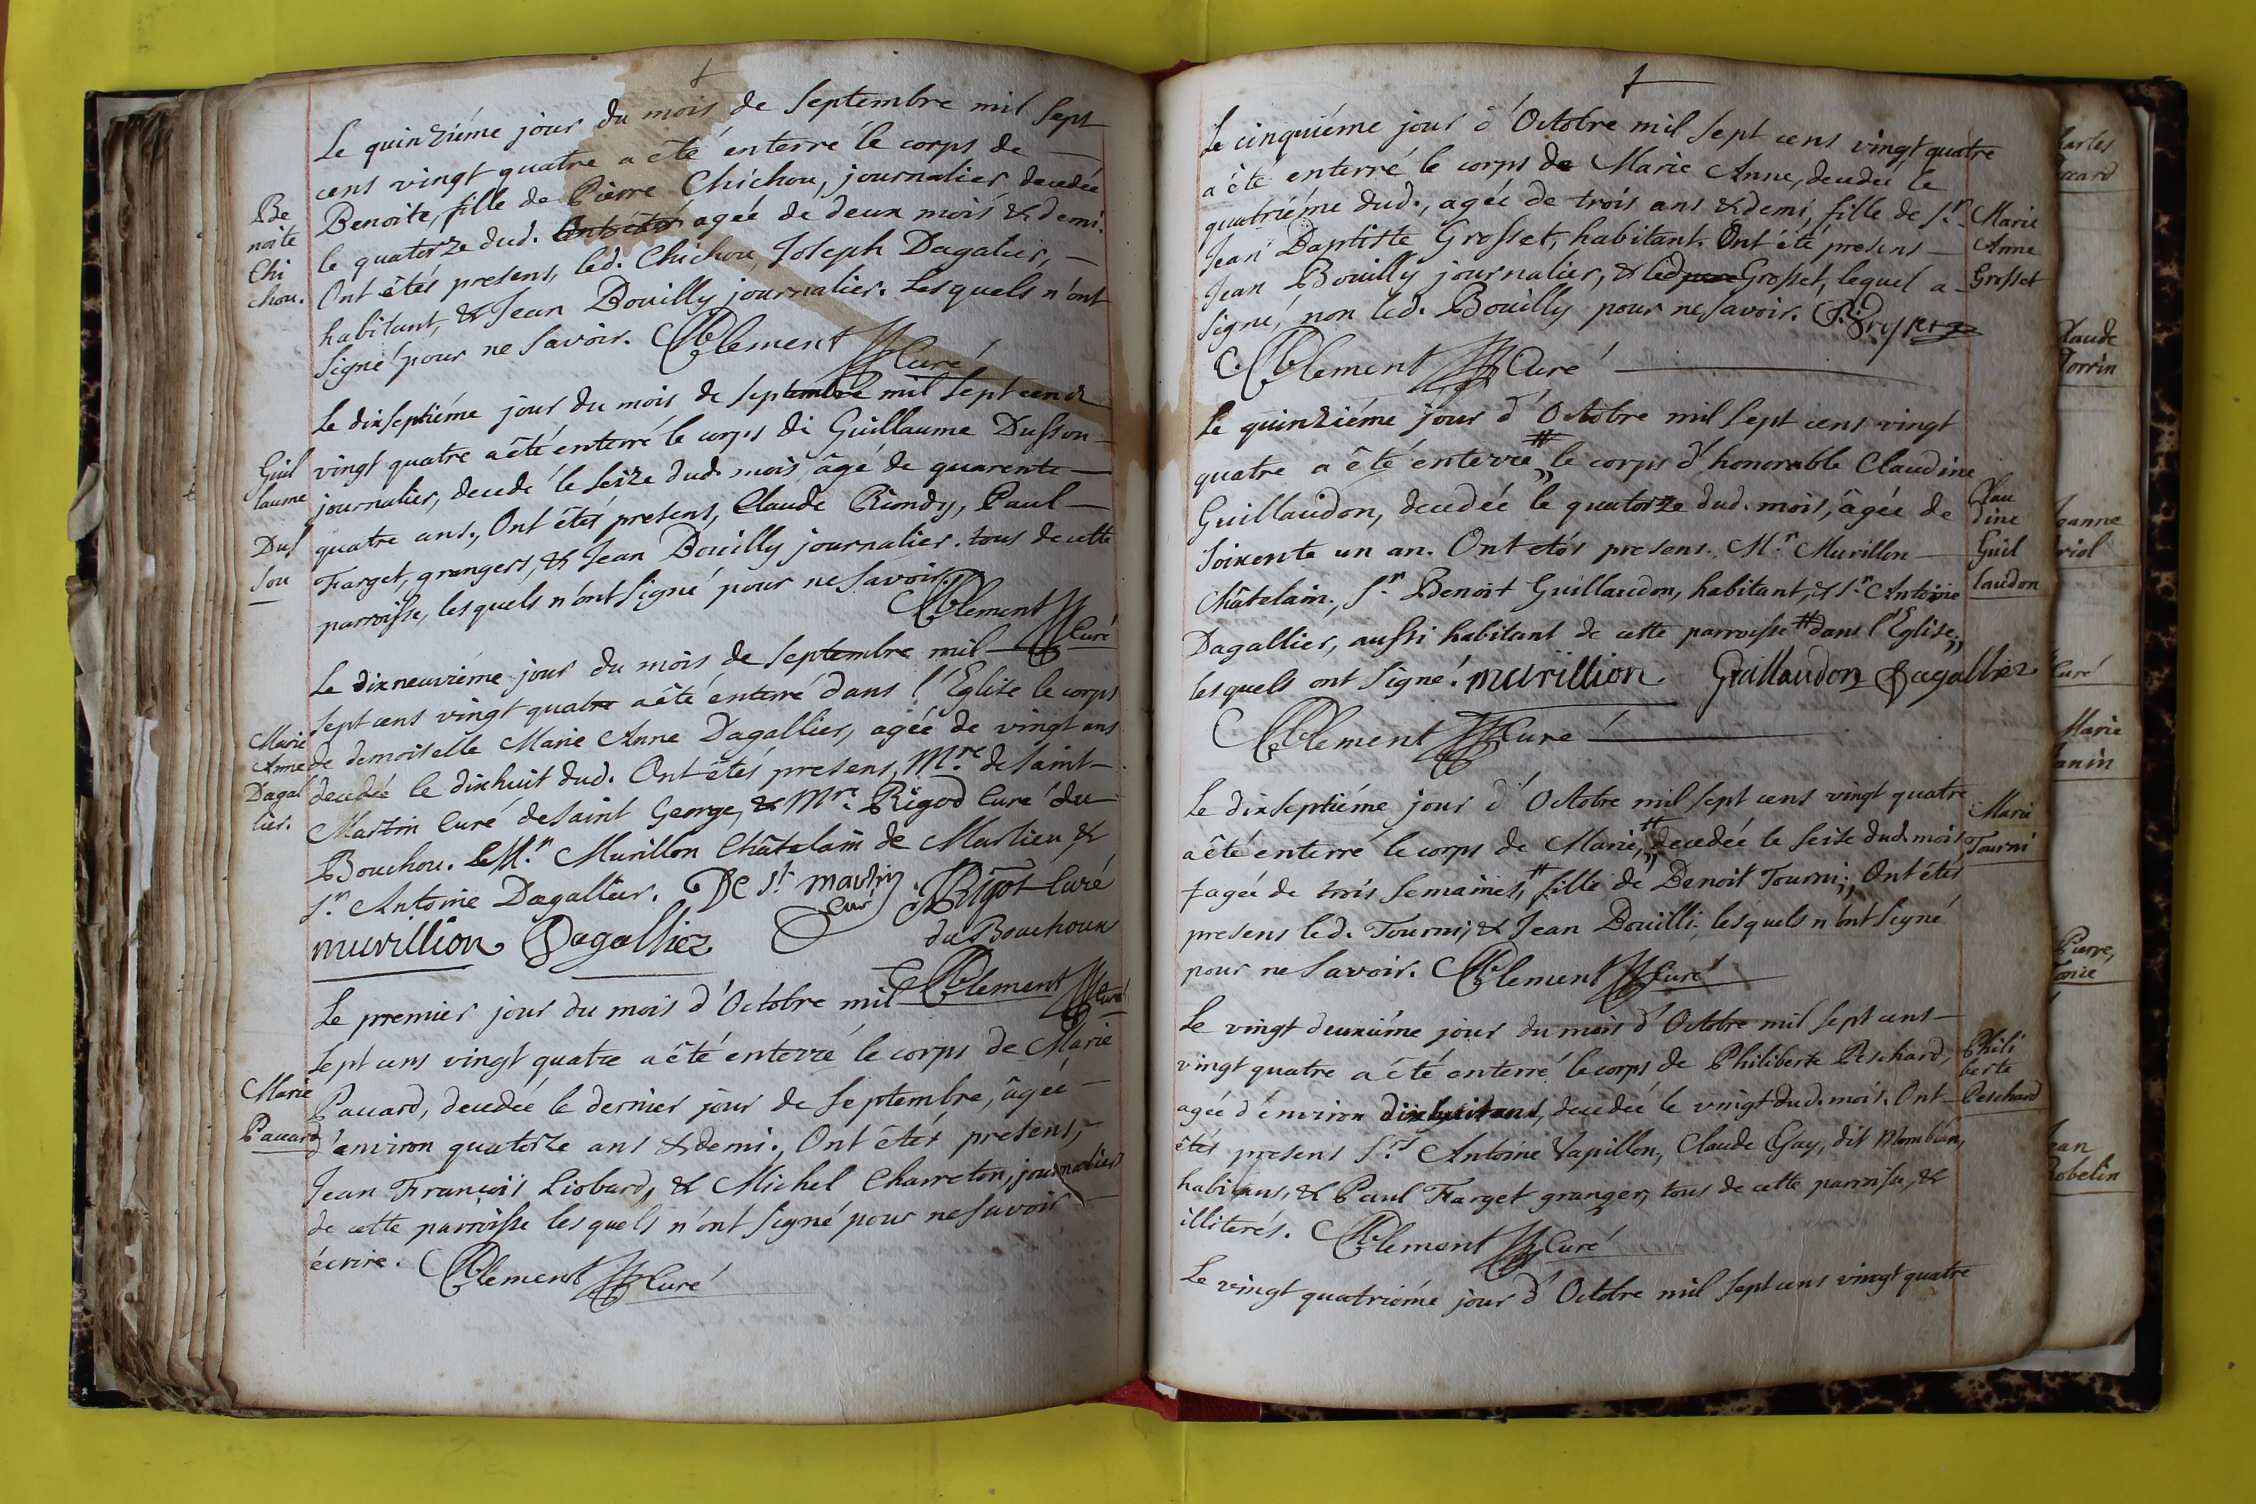 Le quinziéme jour du mois de Septembre mil Sept
cens vingt quatre a été enterré le corps de
Benoite, fille de Pierre Chichou, journalier, decedée
le quatorze dud. agée de deux mois & demi.
Ont êtés presens, led. Chichou, Joseph Dagalier,
habitant, & Jean Bouilly journalier. Lesquels n'ont
Signé pour ne Savoir. Clement Curé
Be
noite
Chi
chou.
Le dixseptiéme jour du mois de septembre mil Sept cens
vingt quatre a êté enterré le corps de Guillaume Dusson
journalier, decedé le Seize dud. mois, âgé de quarente
quatre ans., Ont êtés presens, Claude Riondy, Paul
Farget, grangers, & Jean Bouilly journalier. tous de cette
parroisse, lesquels n'ont Signé pour ne Savoir.
Clement Curé
Guil
laume
Dus
sou
Le dixneuviéme jour du mois de septembre mil
Sept cens vingt quatre a êté enterré dans l'Eglise le corps
de demoiselle Marie Anne Dagallier, agée de vingt ans
decedée le dixhuit dud. Ont êtés presens, Mre. de Saint
Martin Curé de Saint George, & Mre. Rigod Curé du
Bouchou. Mr. Murillon Châtelain de Marlieu &
Sr. Antoine Dagallier. De St. martin J Rigot Curé
Curé du Bouchoux
murillion Dagallier
Clement Curé
Marie
Anne
Dagal
lier.
Le premier jour du mois d'Octobre mil
Sept cens vingt quatre a êté enterré le corps de Marie
Paccard, decedée le dernier jour de Septembre, âgée
d'environ quatorze ans & demi., Ont êtés presens,
Jean François Liobard, & Michel Charreton, journaliers
de cette parroisse lesquels n'ont Signé pour ne Savoir
écrire. Clement Curé
Marie
Paccard
Le cinquiéme jour d'Octobre mil Sept cens vingt quatre
a êté enterré le corps de Marie Anne, decedée le
quatriéme dud., agée de trois ans & demi, fille de Sr.
Jean Baptiste Grosset, habitant. Ont été presens
Jean Bouilly journalier, & led Grosset, lequel a
Signé, non led. Bouilly pour ne Savoir.
Clement Curé
Marie
Anne
Grosset
Le quinziéme jour d'Octobre mil Sept cens vingt
quatre a êté enterré # le corps d'honorable Claudine
Guillaudon, decedée le quatorze dud. mois, âgée de
Soixente un an. Ont etés presens. Mr. Murillon
Châtelain., Sr. Benoit Guillaudon, habitant, & Sr. Antoine
Dagallier, aussi habitant de cette parroisse # dans l'Eglise,
lesquels ont Signé. murillion Guillaudon Dagallier
Clement Curé
Clau
dine
Guil
laudon
Le dixseptiéme jour d'Octobre mil sept cens vingt quatre
a êté enterré le corps de Marie, # decedée le Seise dud. mois
agée de trois Semaines, # fille de Benoit Tourni., Ont étés
presens led. Tourni, & Jean Bouilli, lesquels n'ont Signé
pour ne Savoir. Clement Curé
Marie
Tourni
Le vingt deuxiéme jour du mois d'Octobre mil Sept cens
vingt quatre a êté enterré le corps de Philiberte Peschard,
agée d'environ dixhuit ans, decedée le vingt dud. mois. Ont
êtés presens Srs. Antoine Vapillon, Claude Gay, dit Mombian,
habitans, & Paul Farget granger, tous de cette parroisse, &
illiterés. Clement Curé
Phili
berte
Peschard
Le vingt quatriéme jour d'Octobre mil Sept cens vingt quatre
Marie
Pierre,